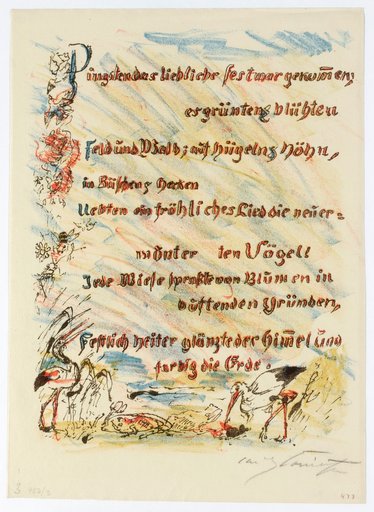 Pfingsten das liebliche fest war gekom̄en;
es grünten & blühten
Feld und Wald; auf Hügeln & Höhn,
in Büschen & Hecken
Uebten ein fröhliches Lied die neuer=
munter ten Vögel!
Jede Wiese sproßte von Blumen in
duftenden Gründen,
Festlich heiter glänzte der Him̄el und
farbig die Erde.
3